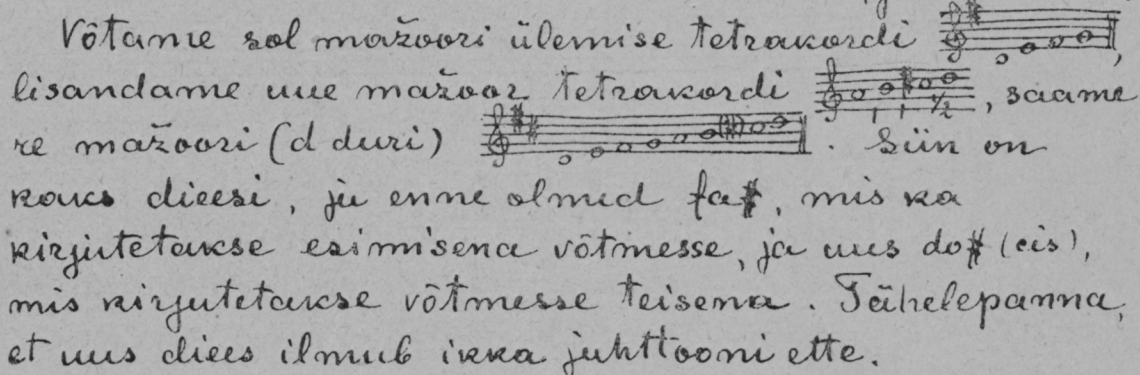 Võtame sol mažoori ülemise tetrakordi ,
lisandame uue mažoor tetrakordi 1 1 ½ , saame
re mažoori (d duri) . Siin on
kaks dieesi, ju enne olnud fa#, mis ka
kirjutetakse esimisena võtmesse, ja uus do# (cis),
mis kirjutetakse võtmesse teisena. Tähelepanna,
et uus diees ilmub ikka juhttooni ette.